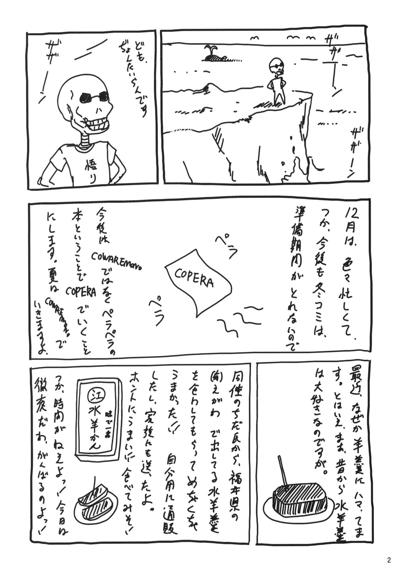 ザザ
ザザーン
ども、
ぢょんたいらんです
悟り
12月は、色々忙しくて、
つか、今後も冬コミは、
準備期間がとれないので
ペラ
COPERA
ペラ
今後は COWAREMONO
ではなくペラペラの
本ということで COPERA でいくこと
にします。夏は
で
いきますよ。
最近、なぜか羊羹にハマってま
す。とはいえ、まあ、昔から水羊羹
は大好きなのですが。
同僚のちだ氏から、福井県の
えがわ で出してる水羊羹
を食わしてもらってめちゃくちゃ
うまかった!! 自分用に通販
したし、実家にも送ったよ。
ホントにうまい!! 食べてみそ!
江
水羊かん
つか、時間がねえよっ! 今日は
徹夜だわ、がんばるのよっ!
2